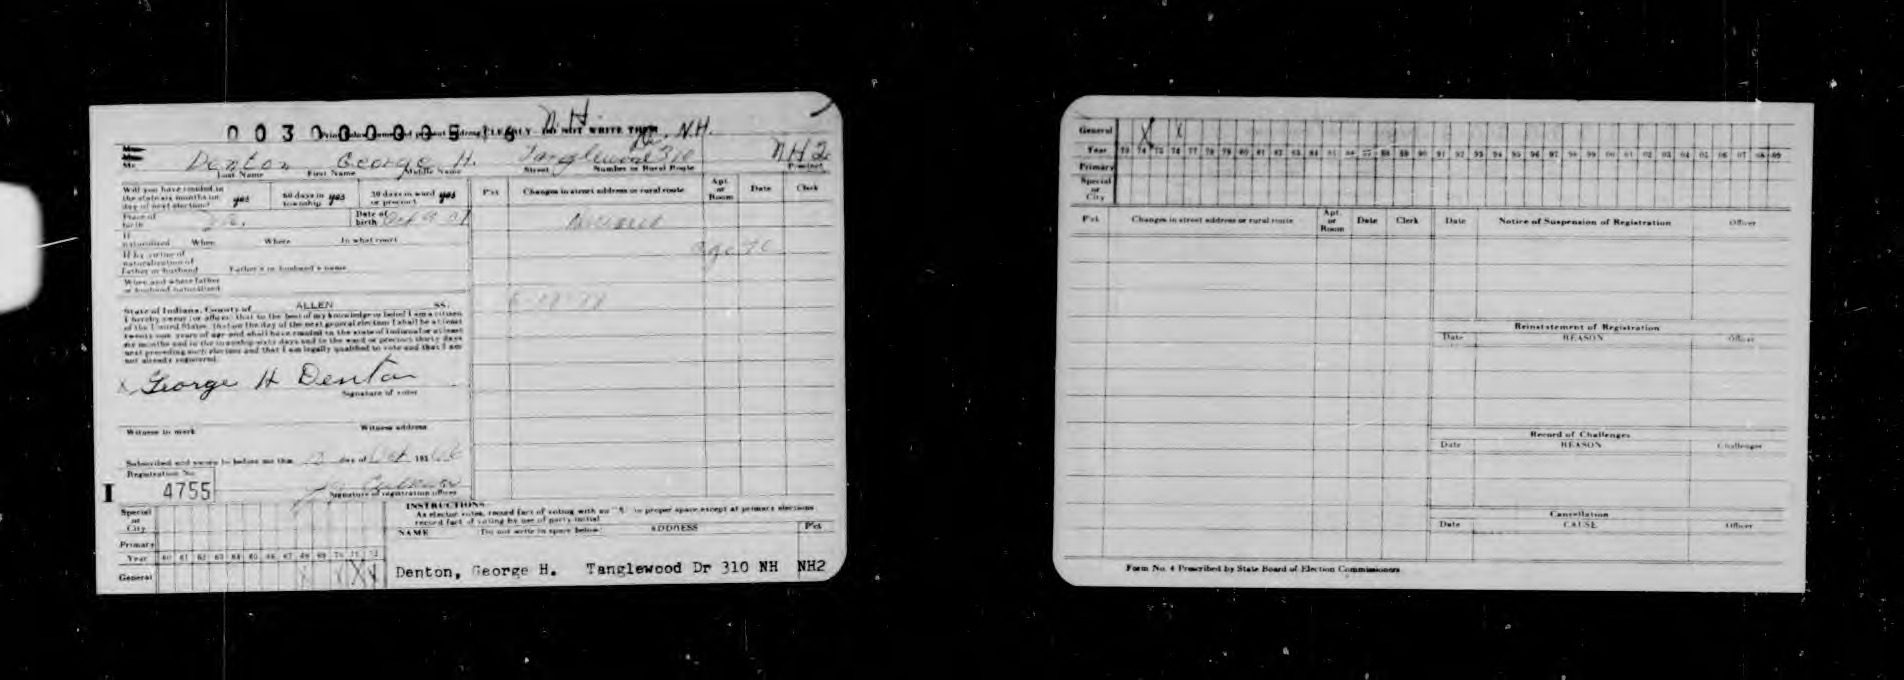 0 0 3 0 0 0 0 0 5 1 6
N.H.
DO NOT WRITE THEM
Dr. N.H.
Denton George H. Tanglewood 310 NH 2
Last Name First Name Middle Name Street Number or Rural Route Precinct
Will you have resided in the state six months on day of next election? yes 60 days in township yes 30 days in ward or precinct yes
Place of birth Date of birth
If naturalized When Where In what court
If by virtue of naturalization of Father or husband Father's or husband's name
When and where father or husband naturalized
P'ct. Changes in street address or rural route Apt. or Room Date Clerk
State of Indiana, County of ALLEN SS.
I hereby swear (or affirm) that to the best of my knowledge or belief I am a citizen
of the United States, that on the day of the next general election I shall be at least
twenty-one years of age and shall have resided in the state of Indiana for at least
six months and in the township sixty days and in the ward or precinct thirty days
next preceding such election and that I am legally qualified to vote and that I am
not already registered.
X George H Denton
Signature of voter
Witness to mark Witness address
Subscribed and sworn to before me this day of 19
Registration No.
I 4755
Signature of registration officer
INSTRUCTIONS
As elector votes, record fact of voting with an "X" in proper space except at primary elections
record fact of voting by use of party initial
NAME Do not write in space below: ADDRESS P'ct.
Special or City
Primary
Year 60 61 62 63 64 65 66 67 68 69 70 71 72
General X X X X
Denton, George H. Tanglewood Dr 310 NH NH2
General X X
Year 73 74 75 76 77 78 79 80 81 82 83 84 85 86 87 88 89 90 91 92 93 94 95 96 97 98 99 00 01 02 03 04 05 06 07 08 09
Primary
Special or City
P'ct. Changes in street address or rural route Apt. or Room Date Clerk
Date Notice of Suspension of Registration Officer
Reinstatement of Registration
Date REASON Officer
Record of Challenges
Date REASON Challenger
Cancellation
Date CAUSE Officer
Form No. 4 Prescribed by State Board of Election Commissioners